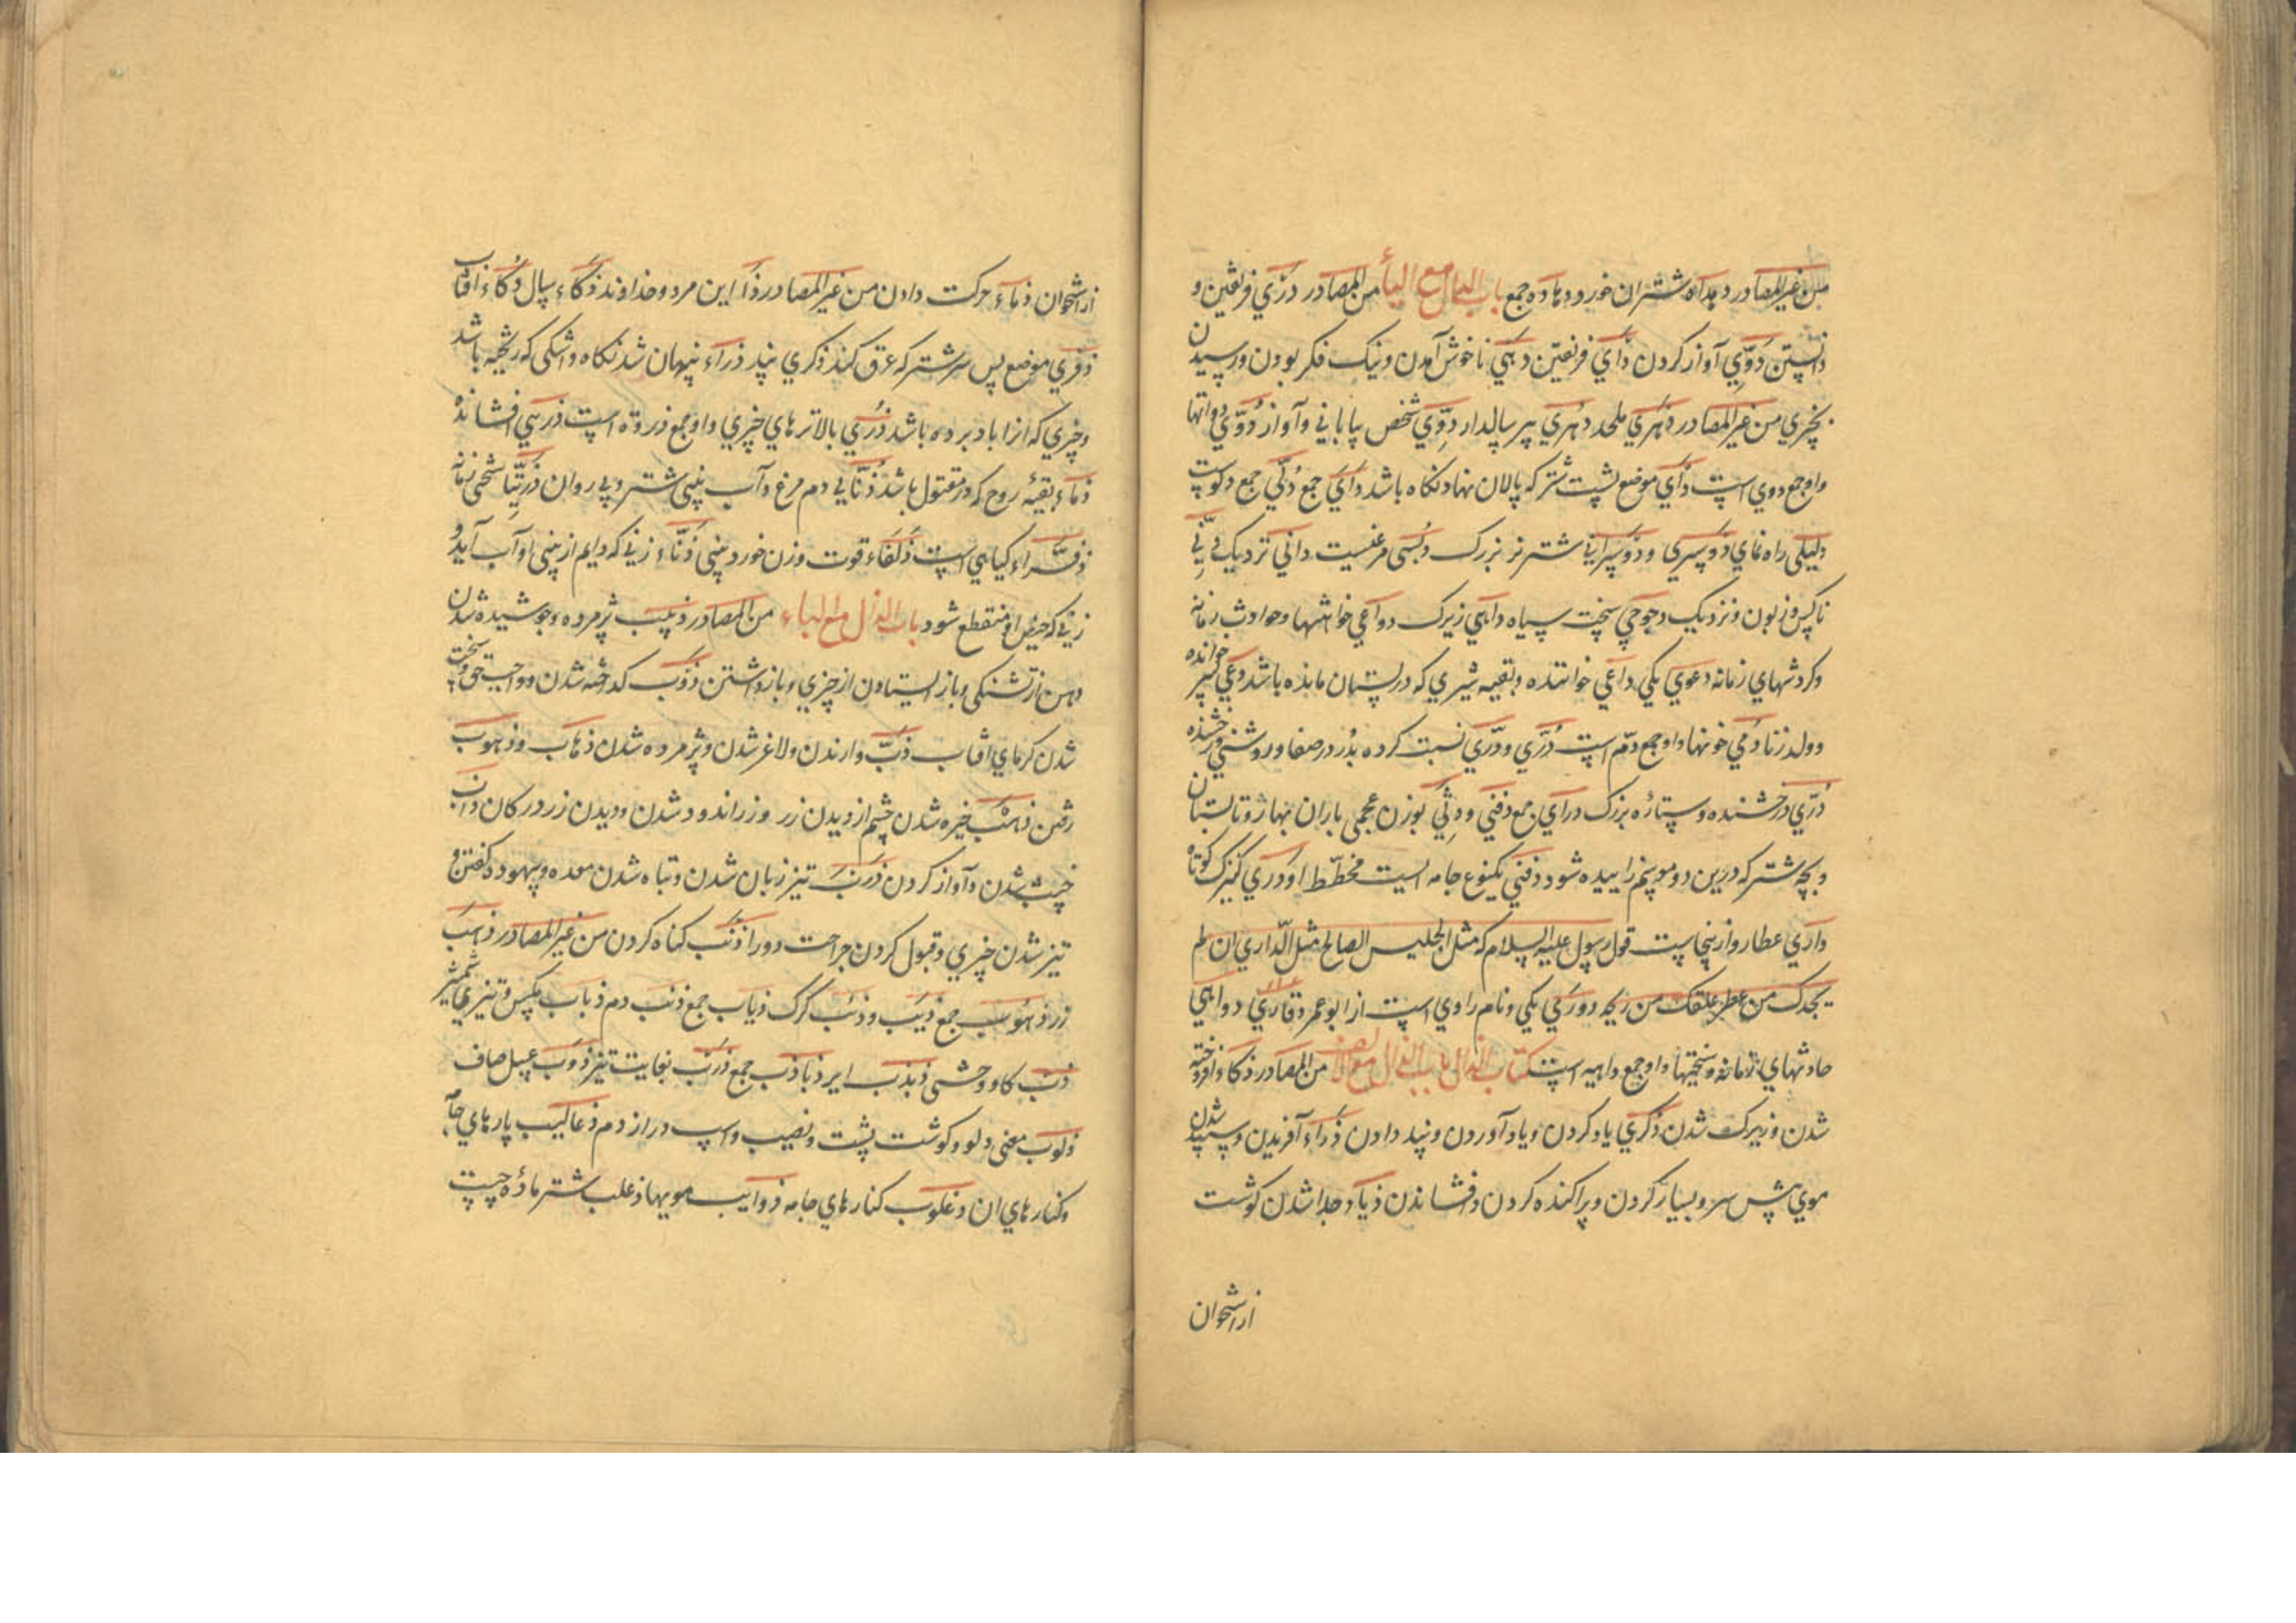 من غیر المصادر دهداه شتران خورد دهاده جمع باب الدال مع الیاء من المصادر دری فریفتن و
دانستن دوی آواز کردن دأی فریفتن دهی ناخوش آمدن و نیک فکر بودن و رسیدن
بچیزی من غیر المصادر دهری ملحد دهری پیر سالدار دوی شخص بیابانی و آواز دوی دواتها
واو جمع دوی است دأی موضع پشت شتر که پالان نهاد نکاه باشد دأی جمع دلی جمع دلوست
دلیلی راه نمای دوسری و دوسرانی شتر نر بزرک دبسی مرغیست دانی نزدیک دنی
ناکس و زبون و نزدیک دجوجی سخت سیاه داهی زیرک دواعی خواهشها و حوادث زمانه
و کردشهای زمانه دعوی یکی داعی خواننده و بقیه شیری که در پستان مانده باشد دعی پسر خوانده
و ولد زنا دمی خونها واو جمع دم است دری و دری نسبت کرده بدر در صفا و روشنی درخشنده
دری درخشنده و ستاره بزرک درای جمع دفنی و دثی بوزن عجمی باران بهار و تابستان
و بچه شتر که درین دو موسم زاییده شود دفنی یکنوع جامه ایست مخطط او دری کنیزک کوتاه
داری عطار و ازینجاست قول رسول علیه السلام که مثل الجلیس الصالح مثل الداری ان لم
یجدک من عطره علقک من ریحه دوری یکی و نام راوی است از ابو عمرو قاری دواهی
حادثهای زمانه و سختیها واو جمع داهیه است کتاب الذال باب الذال مع الالف من المصادر ذکا افروخته
شدن و زیرک شدن ذکری یاد کردن و یاد آوردن و پند دادن ذراء آفریدن و سپید شدن
موی پیش سر و بسیار کردن و پراکنده کردن و افشاندن ذیاء جدا شدن کوشت
از استخوان
از استخوان ذماء حرکت دادن من غیر المصادر ذا این مرد و خداوند ذکاء سال ذکاء آفتاب
ذفری موضع پس سر شتر که عرق کند ذکری پند ذراء پنهان شدنکاه و اشکی که ریخته باشد
و چیزی که از باد برده باشد ذری بالاترهای چیزی واو جمع ذروة است ذری افشانده
ذماء بقیهٔ روح که در مقتول باشد ذنابی دم مرغ و آب بینی شتر و پی روان ذریا سختی زمانه
ذفراء کیاهی است ذلفاء قوت و زن خورد بینی ذناء زنی که دایم از بینی او آب آید و
زنی که حیض او منقطع شود باب الذال مع الباء من المصادر ذبیب پژمرده و جوشیده شدن
دهن از تشنکی و باز ایستادن از چیزی و بازداشتن ذوب کداخته شدن و واجب حق و سخت
شدن کرمای آفتاب ذب وارندن و لاغر شدن و پژمرده شدن ذهاب و ذهوب
رفتن ذهب خیره شدن چشم از دیدن زر و زراندود شدن و دیدن زر در کان ذاب
خبیث شدن و آواز کردن ذرب تیز زبان شدن و تباه شدن معده و بیهوده کفتن و
تیز شدن چیزی و قبول کردن جراحت دورا ذنب کناه کردن من غیر المصادر ذهب
زر ذهوب جمع ذیب و ذئب کرک ذیاب جمع ذنب دم ذباب مکس و تیزی شمشیر
ذب کاو وحشی ذبذب ایر ذباذب جمع ذرب بغایت تیز ذوب عسل صاف
ذنوب معنی دلو و کوشت پشت و نصیب و اسپ دراز دم ذعالیب پارهای جامه
و کنارهای ان ذعلوب کنارهای جامه ذوایب مویها ذعلب شتر ماده چست